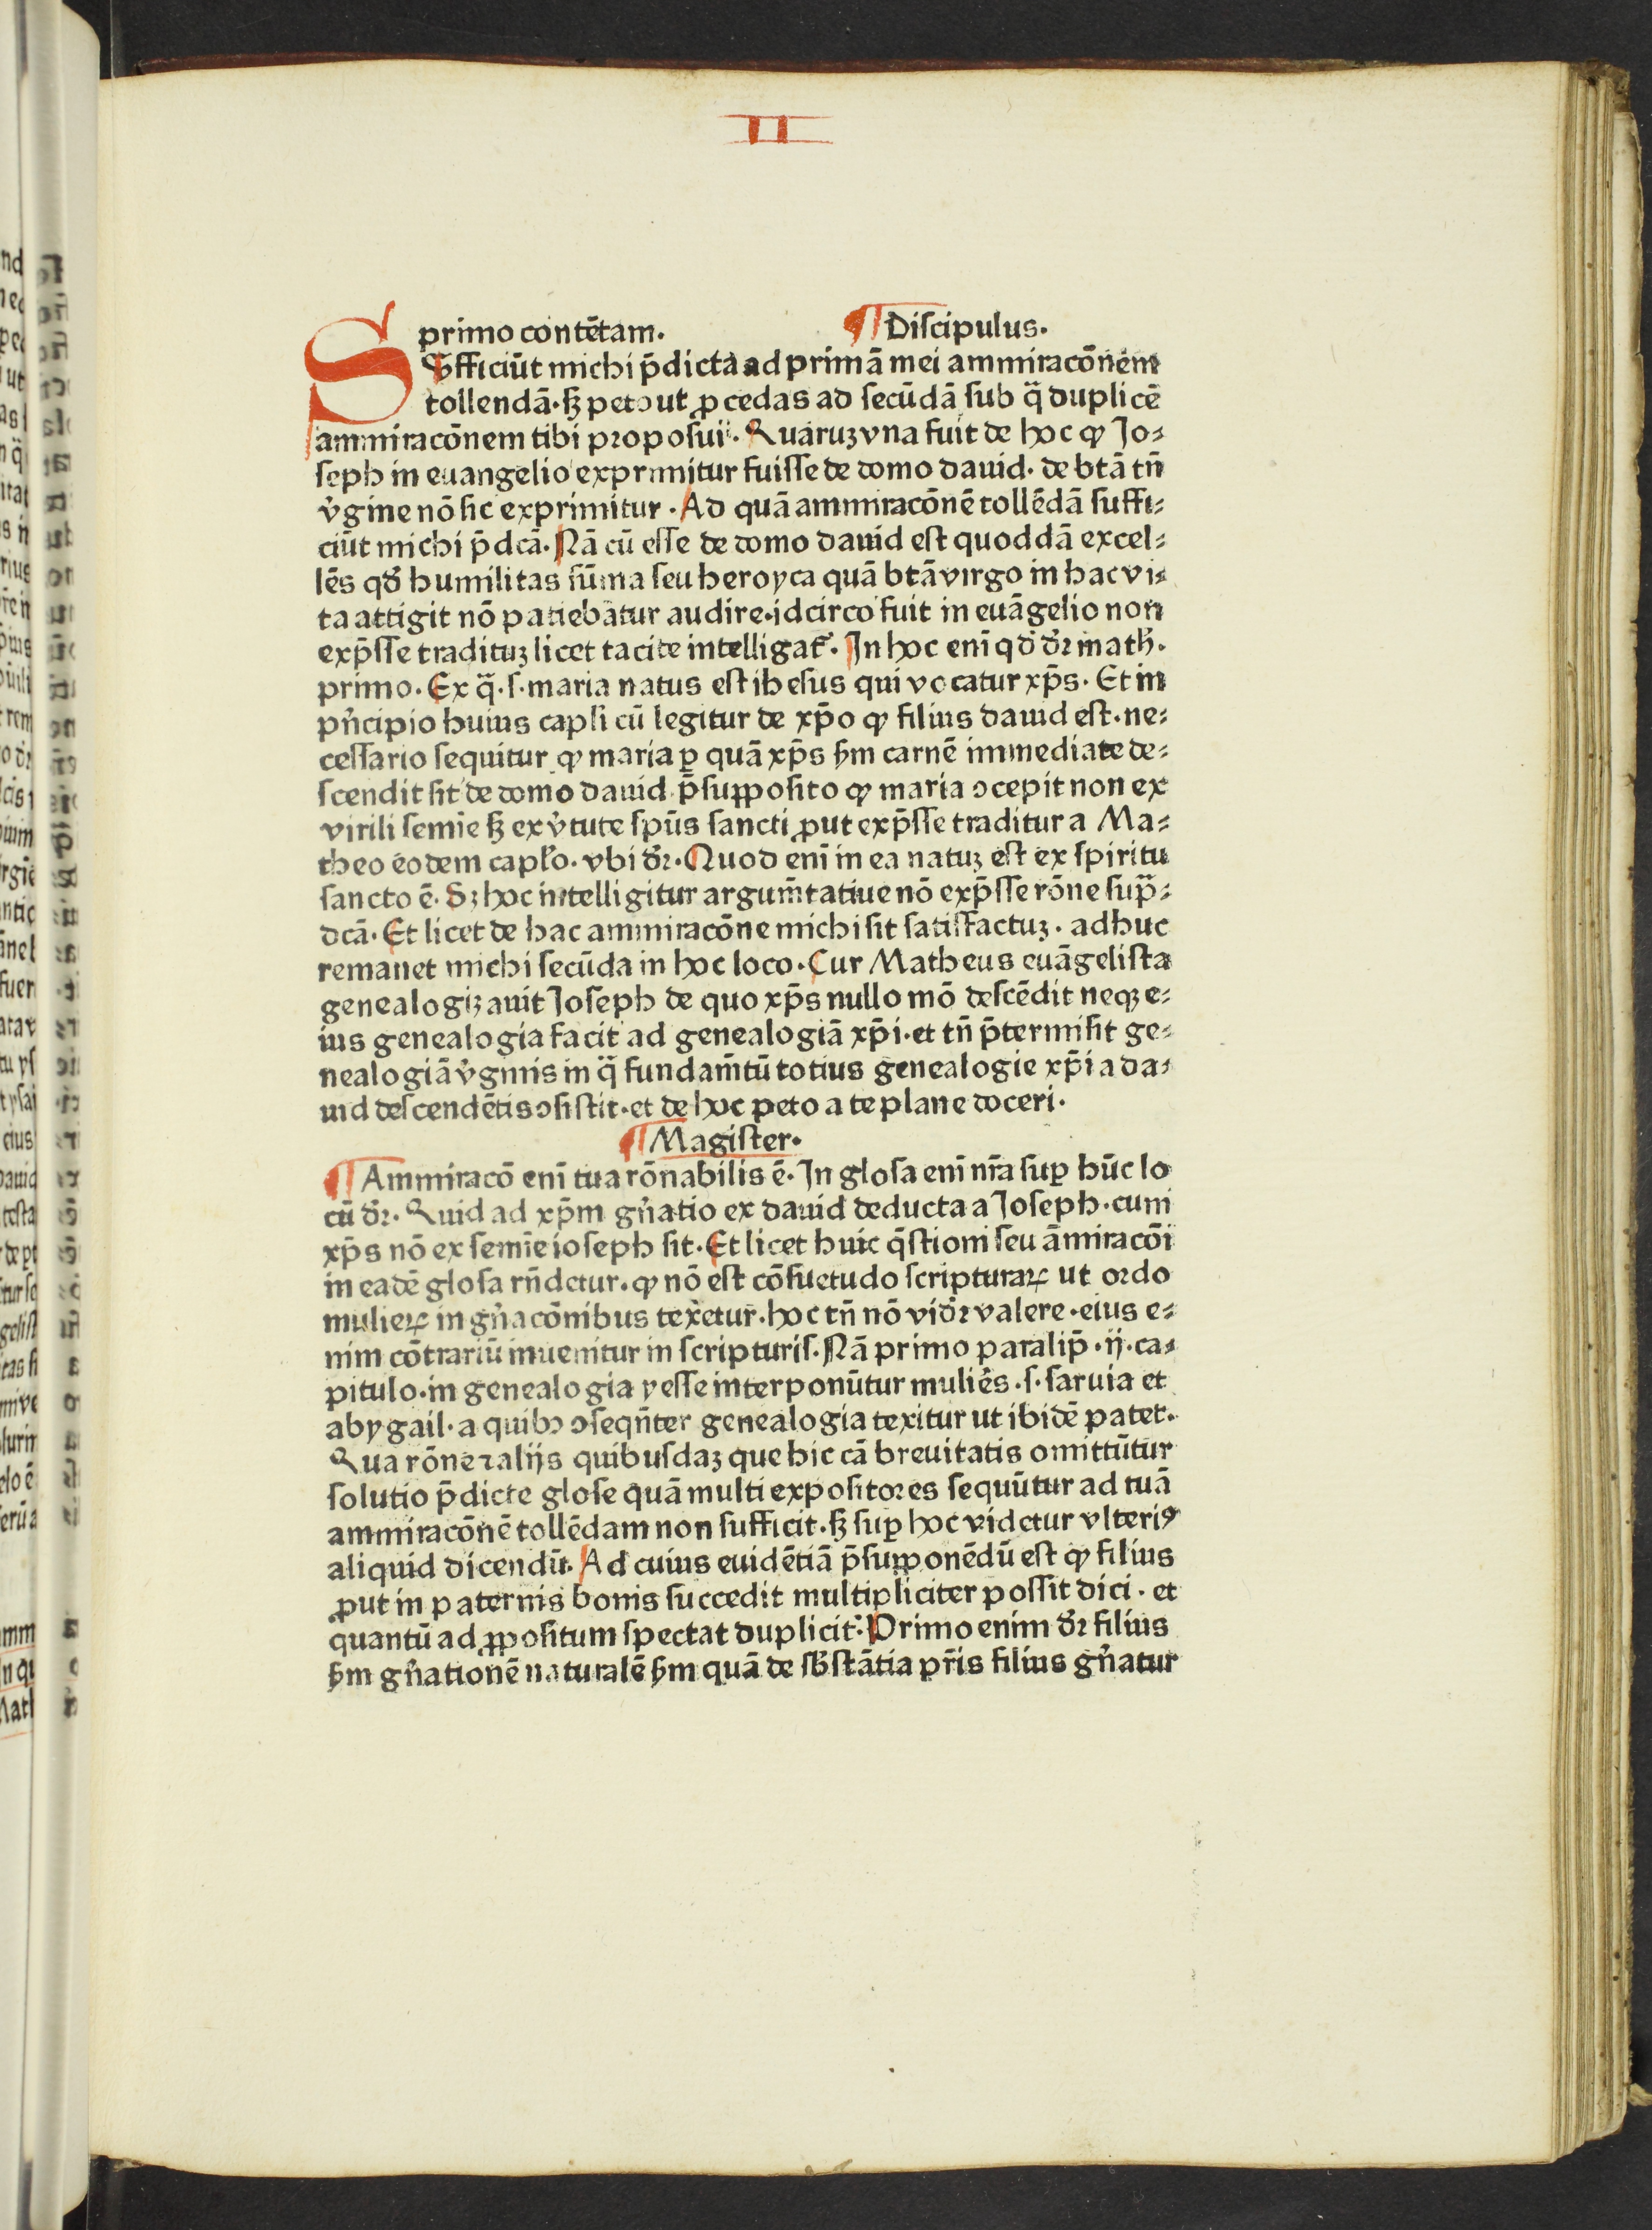 II
primo contētam. ¶ Diſcipulus.
Sufficiūt michi p̄dicta ad primā mei ammiracōnem
tollendā. ſꝫ peto ut ꝓcedas ad ſecūdā ſub q̄ duplicē
ammiracōnem tibi propoſui. Quaruꝫ vna fuit de hoc ꝙ Jo⸗
ſeph in euangelio exprimitur fuiſſe de domo dauid. de btā tn̄
v̓gine nō ſic exprimitur. Ad quā ammiracōnē tollēdā ſuffi⸗
ciūt michi p̄dcā. Nā cū eſſe de domo dauid eſt quoddā excel⸗
lēs qd̓ humilitas ſūma ſeu heroyca quā btā virgo in hac vi⸗
ta attigit nō patiebatur audire. idcirco fuit in euāgelio non
exp̄ſſe tradituꝫ licet tacite intelligat᷑. In hoc enī qd̓ dr̄ math̓.
primo. Ex q̄. ſ. maria natus eſt iheſus qui vocatur xp̄s. Et in
pn̓cipio huius capli cū legitur de xp̄o ꝙ filius dauid eſt. ne⸗
ceſſario ſequitur ꝙ maria ꝑ quā xp̄s ẜm carnē immediate de⸗
ſcendit ſit de domo dauid p̄ſuppoſito ꝙ maria ↄcepit non ex
virili ſemīe ſꝫ ex v̓tute ſpūs ſancti ꝓut exp̄ſſe traditur a Ma⸗
theo eodem cap̄lo. vbi dr̄. Quod enī in ea natuꝫ eſt ex ſpiritu
ſancto ē. Sꝫ hoc intelligitur argum̄tatiue nō exp̄ſſe rōne ſup̄⸗
dcā. Et licet de hac ammiracōne michi ſit ſatiſfactuꝫ. adhuc
remanet michi ſecūda in hoc loco. Cur Matheus euāgeliſta
genealogiꝫauit Joſeph de quo xp̄s nullo mō deſcēdit neqꝫ e⸗
ius genealogia facit ad genealogiā xp̄i. et tn̄ p̄termiſit ge⸗
nealogiā v̓ginis in q̄ fundam̄tū totius genealogie xp̄i a da⸗
uid deſcendētis ↄſiſtit. et de hoc peto a te plane doceri.
¶ Magiſter.
¶ Ammiracō enī tua rōnabilis ē. In gloſa enī nr̄a ſuꝑ hūc lo
cū dr̄. Quid ad xp̄m gn̓atio ex dauid deducta a Joſeph. cum
xp̄s nō ex ſemīe ioſeph ſit. Et licet huic q̄ſtioni ſeu āmiracōi
in eadē gloſa rn̄detur. ꝙ nō eſt cōſuetudo ſcripturaꝝ ut ordo
mulieꝝ in gn̓acōnibus tex̓etur. hoc tn̄ nō vidr̄ valere. eius e⸗
nim cōtrariū inuenitur in ſcripturiſ. Nā primo paralip̄. ij. ca⸗
pitulo. in genealogia yeſſe interponūtur muliēs. ſ. ſaruia et
abygail. a quibↄ ↄſeqn̄ter genealogia texitur ut ibidē patet.
Qua rōne ⁊ alijs quibuſdaꝫ que hic cā breuitatis omittūtur
ſolutio p̄dicte gloſe quā multi expoſitores ſequūtur ad tuā
ammiracōnē tollēdam non ſufficit. ſꝫ ſuꝑ hoc videtur vlteriꝰ
aliquid dicendū. Ad cuius euidētiā p̄ſupponēdū eſt ꝙ filius
ꝓut in paternis bonis ſuccedit multipliciter poſſit dici. et
quantū ad ꝓpoſitum ſpectat duplicit̓. Primo enim dr̄ filius
ẜm gn̓ationē naturalē ẜm quā de ſb̓ſtātia pr̄is filius gn̓atur